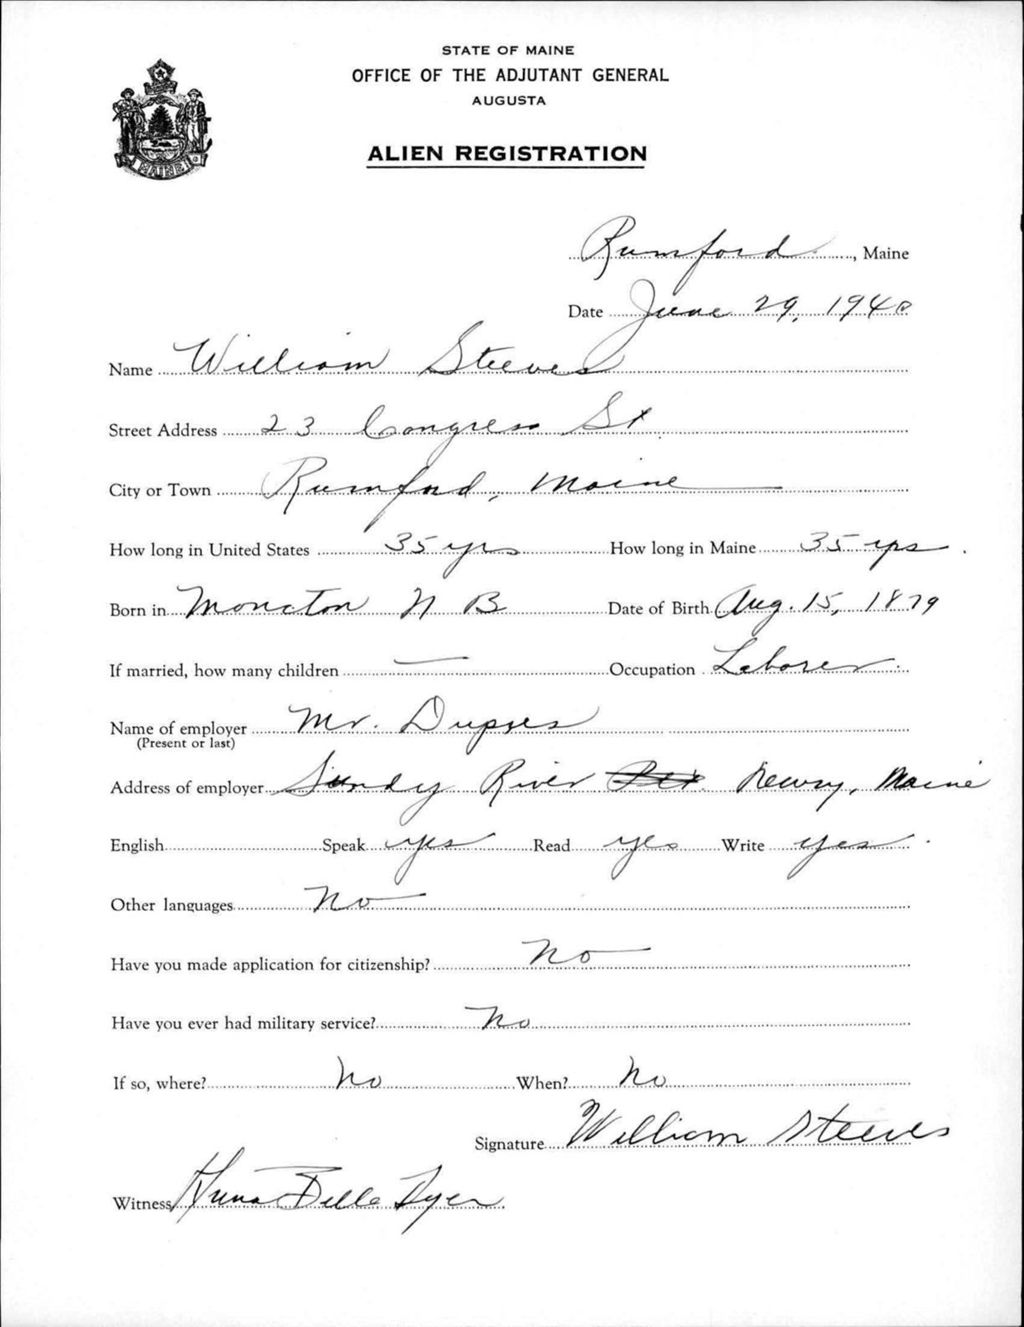 STATE OF MAINE
OFFICE OF THE ADJUTANT GENERAL
AUGUSTA
ALIEN REGISTRATION
MAINE
Rumford, Maine
Date June 29, 1940
Name William Steeves
Street Address 23 Congress St.
City or Town Rumford, Maine
How long in United States 35 yrs How long in Maine 35 yrs.
Born in Moncton N B Date of Birth Aug. 15, 1879
If married, how many children — Occupation Laborer.
Name of employer Mr.
(Present or last)
Address of employer Sundy River Newry, Maine
English Speak yes Read yes Write yes.
Other languages No
Have you made application for citizenship? No
Have you ever had military service? No
If so, where? No When? No
Signature William Steeves
Witness Belle Dyer